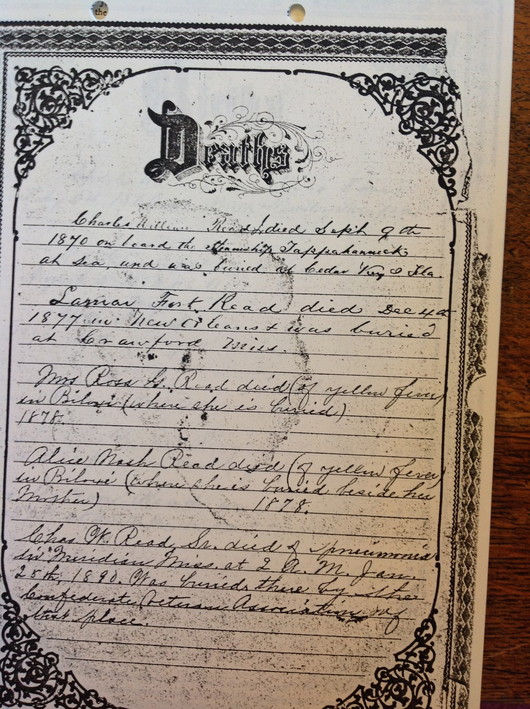 the
Deaths
Charles William Read J. died Sept 9th
1870 on board the Steamship Tappahannock
at sea, and was buried at Cedar Keys Fla.
Lamar Fort Read died Dec 4th
1877 in New Orleans & was buried
at Crawford Miss.
Mrs Rosa G. Read died (of yellow fever
in Biloxi (where she is buried)
1878.
Alice Nash Read died (of yellow fever
in Biloxi (where she is buried beside her
Mother) 1878.
Chas W. Read Sr. died of pneumonia
in Meridian Miss at 2 A.M. Jan.
25th, 1890. Was buried there by the
Confederate Veteran Association of
that place.